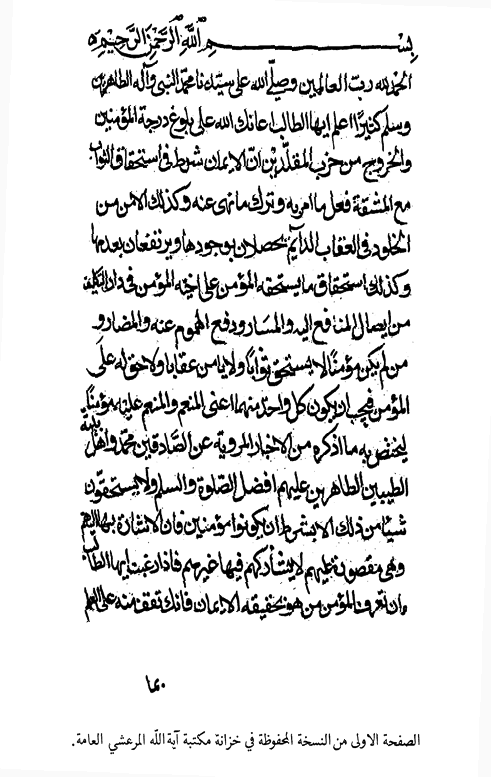 بسم الله الرحمن الرحيم
الحمد لله رب العالمين وصلى الله على سيدنا محمد النبي وآله الطاهرين
وسلم كثيرا اعلم ايها الطالب اعانك الله على بلوغ درجة المؤمنين
والخروج من حزب المقلدين ان الايمان شرط في استحقاق الثواب
مع المشقة فعل ما امر به وترك ما نهى عنه وكذلك الامن من
الخلود في العقاب الدايم يحصلان بوجودها ويرتفعان بعدمها
وكذلك استحقاق ما يستحقه المؤمن على اخيه المؤمن في دار التكليف
من ايصال المنافع اليه والمسار ودفع الهموم عنه والمضار و
من لم يكن مؤمنا لا يستحق ثوابا ولا يامن عقابا ولا حق له على
المؤمن فيجب ان يكون كل واحد منهما اعنى المنعم والمنعم عليه مؤمنا
ليختص به ما اذكره من الاخبار المروية عن الصادقين محمد واهل بيته
الطيبين الطاهرين عليهم افضل الصلوة والسلم ولا يستحقون
شيئا من ذلك الا بشرط ان يكونوا مؤمنين فان الاشارة بها اليهم
وهى مقصورة عليهم لا يشاركهم فيها غيرهم فاذا رغبت ايها الطالب
ان تعرف المؤمن من هو بحقيقة الايمان فانك تقف منه على العلم
بما
الصفحة الاولى من النسخة المحفوظة في خزانة مكتبة آية الله المرعشي العامة.